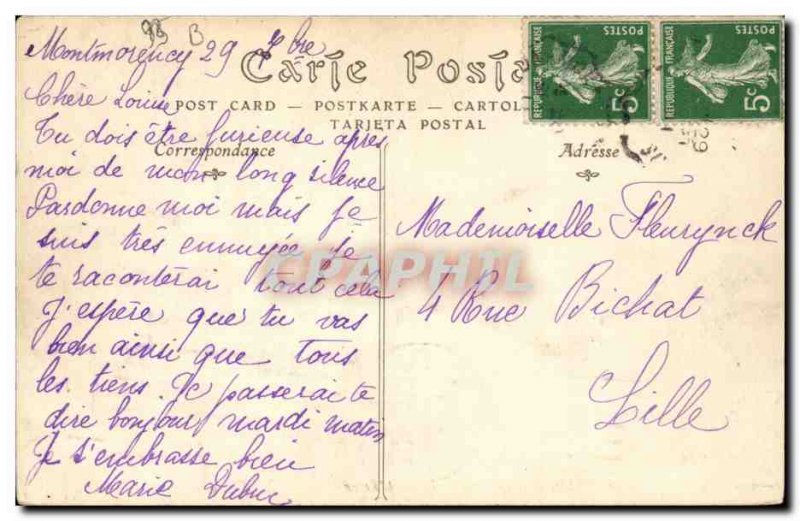 95 B
Montmorency 29 7bre
Carte Posta
POST CARD — POSTKARTE — CARTOL
TARJETA POSTAL
Correspondance
Chère Louise
Tu dois être furieuse après
moi de mon long silence
Pardonne moi mais je
suis très ennuyée je
te raconterai tout cela
J'espère que tu vas
bien ainsi que tous
les tiens. Je passerai te
dire bonjour mardi matin
Je t'embrasse bien
Marie Dubuc
Adresse
Mademoiselle Fleurynck
4 Rue Bichat
Lille
REPUBLIQUE FRANÇAISE
POSTES
5c
REPUBLIQUE FRANÇAISE
POSTES
5c
CPAPHIL